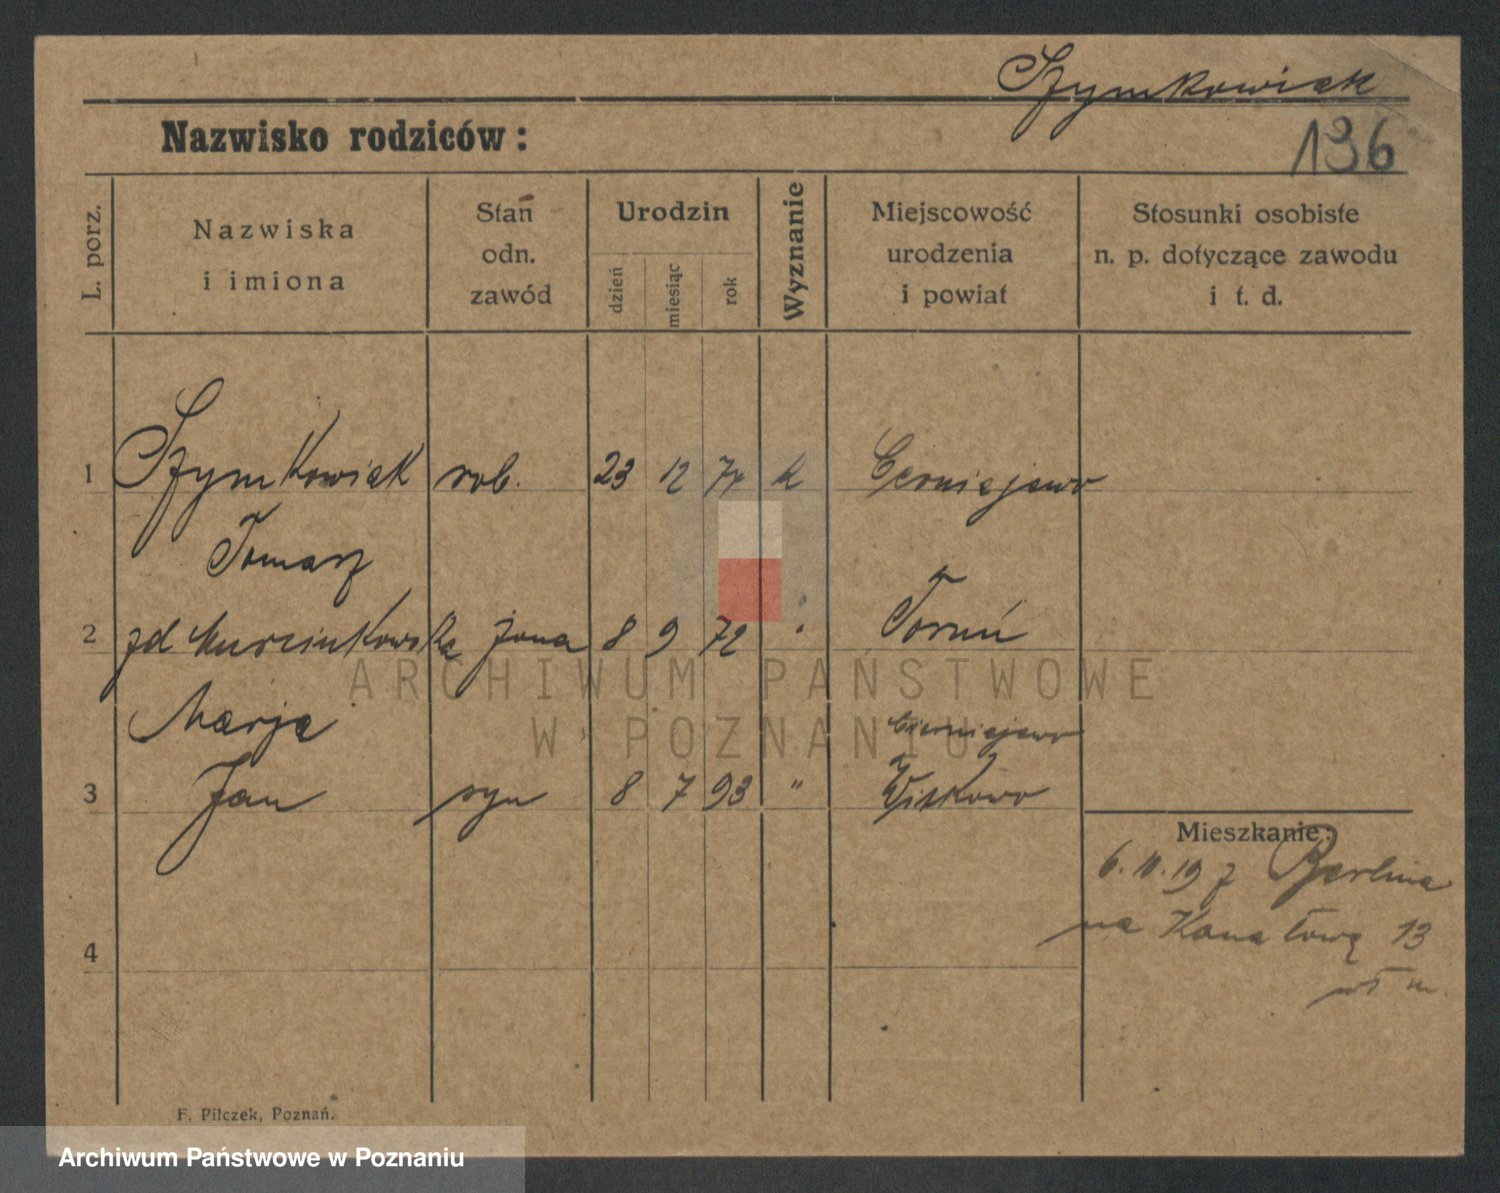 Szymkowiak
Nazwisko rodziców:
196
L. porz.
Nazwiska
i imiona
Stan
odn.
zawód
Urodzin
dzień
miesiąc
rok
Wyznanie
Miejscowość
urodzenia
i powiat
Stosunki osobiste
n. p. dotyczące zawodu
i t. d.
1 Szymkowiak rob. 23 12 74 k Czerniejewo
Tomasz
2 zd Murcinkowska żona 8 9 72 " Toruń
Marja
Czerniejewo
3 Jan syn 8 7 93 "
Mieszkanie:
6. 11. 19 z Berlina
na Kanałową 13
4
F. Pilczek, Poznań.
ARCHIWUM PAŃSTWOWE
W POZNANIU
Archiwum Państwowe w Poznaniu